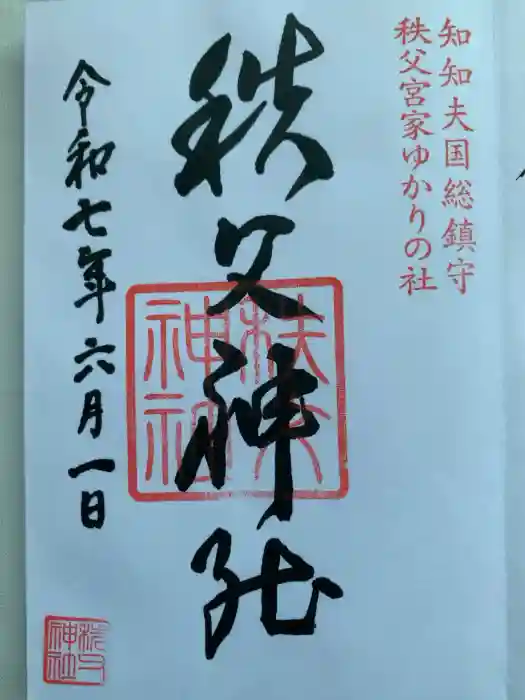 知知夫国総鎮守
秩父宮家ゆかりの社
秩父神社
秩父神社
令和七年六月一日
秩父神社